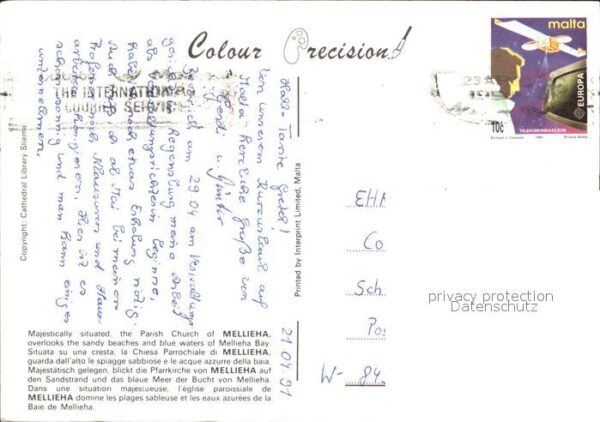 Colour Precision
malta
EUROPA
10c
TELEKOMUNIKAZZJONI
1991
THE INTERNATIONAL
COURIER SERVICE
Copyright: Cathedral Library Sliema
Printed by Interprint Limited, Malta
21.04.91
Hallo Tante Gretel!
Von unserem Kurzurlaub auf
Malta herzliche Grüße von
Gerdi u. Günter
Da ich am 29.04 am Verwaltungs-
gericht Regensburg meine Arbeit
als Verwaltungsrichterin beginne,
noch etwas Erholung nötig.
Auch ab Mai bei meinem
Professor Klausuren und Haus-
arbeiten korrigieren. Hier ist es
schön sonnig und man kann einiges
unternehmen.
EHR
Co
Sch
Pos
W-84
privacy protection
Datenschutz
Majestically situated, the Parish Church of MELLIEHA,
overlooks the sandy beaches and blue waters of Mellieha Bay.
Situata su una cresta, la Chiesa Parrochiale di MELLIEHA,
guarda dall'alto le spiagge sabbiose e le acque azzurre della baia.
Majestätisch gelegen, blickt die Pfarrkirche von MELLIEHA auf
den Sandstrand und das blaue Meer der Bucht von Mellieha
Dans une situation majestueuse, l'église paroissiale de
MELLIEHA domine les plages sableuse et les eaux azurées de la
Baie de Mellieha.